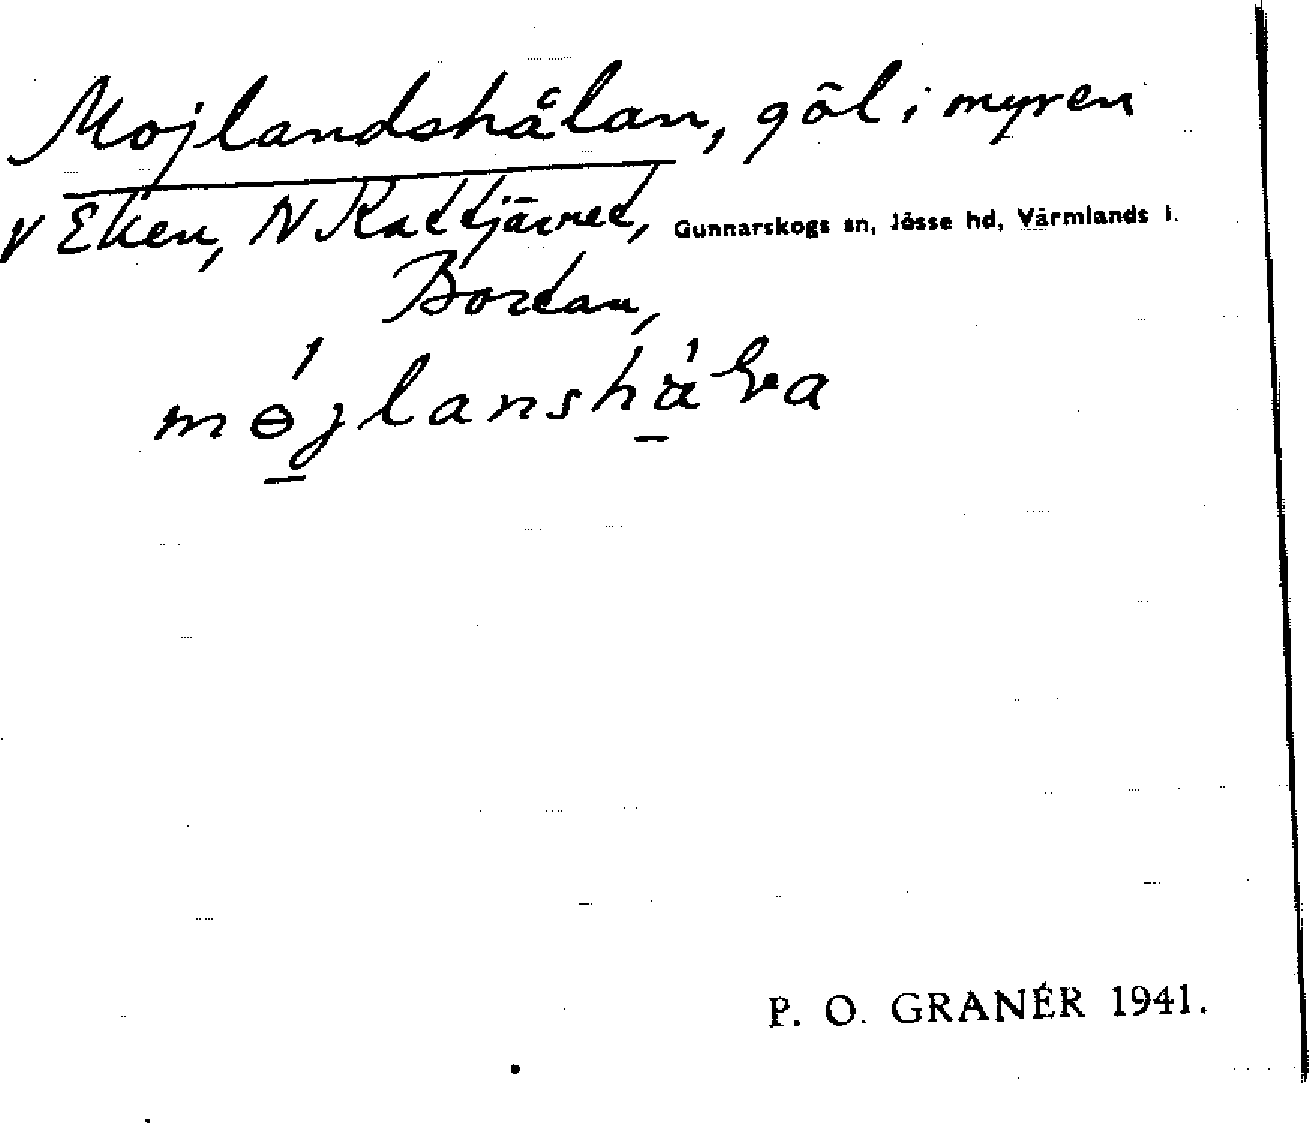 Mojlandshålan, göl i myren
V Eken, N Kattjärnet, Gunnarskogs sn, Jösse hd, Värmlands l.
Bortan,
P. O. GRANÉR 1941.